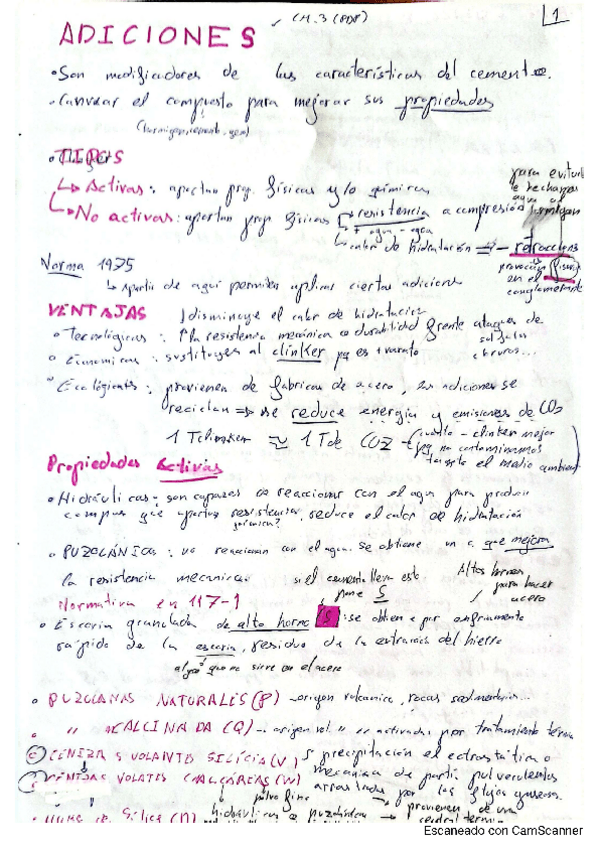 CH.3 (PDF)
1
ADICIONES
• Son modificadores de las características del cemento.
• Conocer el compuesto para mejorar sus propiedades
(hormigon, cemento, agua)
TIPOS
↳ Activas: aportan prop. físicas y/o químicas
↳ No activas: aportan prop. físicas resistencia a compresión
agua
↳ calor de hidratación ⇒ - retracciones
para evitar
agua
hormigon
en el
conglomerante
Norma 1975
↳ Apartir de aqui permiten aplicar ciertas adiciones
VENTAJAS
disminuye el calor de hidratación
• Tecnológicas: resistencia mecánica o durabilidad frente ataques de
sulfatos
cloruros...
• Económicas: sustituyen al clinker
• Ecológicas: provienen de fabricas de acero, adiciones se
reciclan ⇒ se reduce energía y emisiones de CO2
1 T clinker ≈ 1T de CO2
clinker mejor
no contaminamos
el medio ambiente
Propiedades Activas
• Hidráulicas - son capazes de reaccionar con el agua para producir
compus que aportan resistencia, reduce el calor de hidratación
química?
• PUZOLÁNICAS: no reaccionan con el agua. se obtiene que mejora
la resistencia mecanica.
si el cemento lleva esto
pone S
Altos hornos
para hacer
acero
Normativa en 117-1
• Escoria granulada de alto horno (S): se obtiene por enfriamiento
rápido de la escoria, residuo de la extracción del hierro
algo que no sirve en el acero
• PUZOLANAS NATURALES (P) - origen volcanico, rocas sedimentarias...
• " " CALCINADA (Q) - origen vol. " activadas por tratamiento térmico
CENIZAS VOLANTES SILÍCIA (V) precipitación electrostática o
VOLATES CALCÁREAS (W) mecánica de partí. pulverulentas
arrastradas por los flujos gaseosos.
polvo fino
hidráulicas o puzolánicas → provienen de una
central térmica
Escaneado con CamScanner